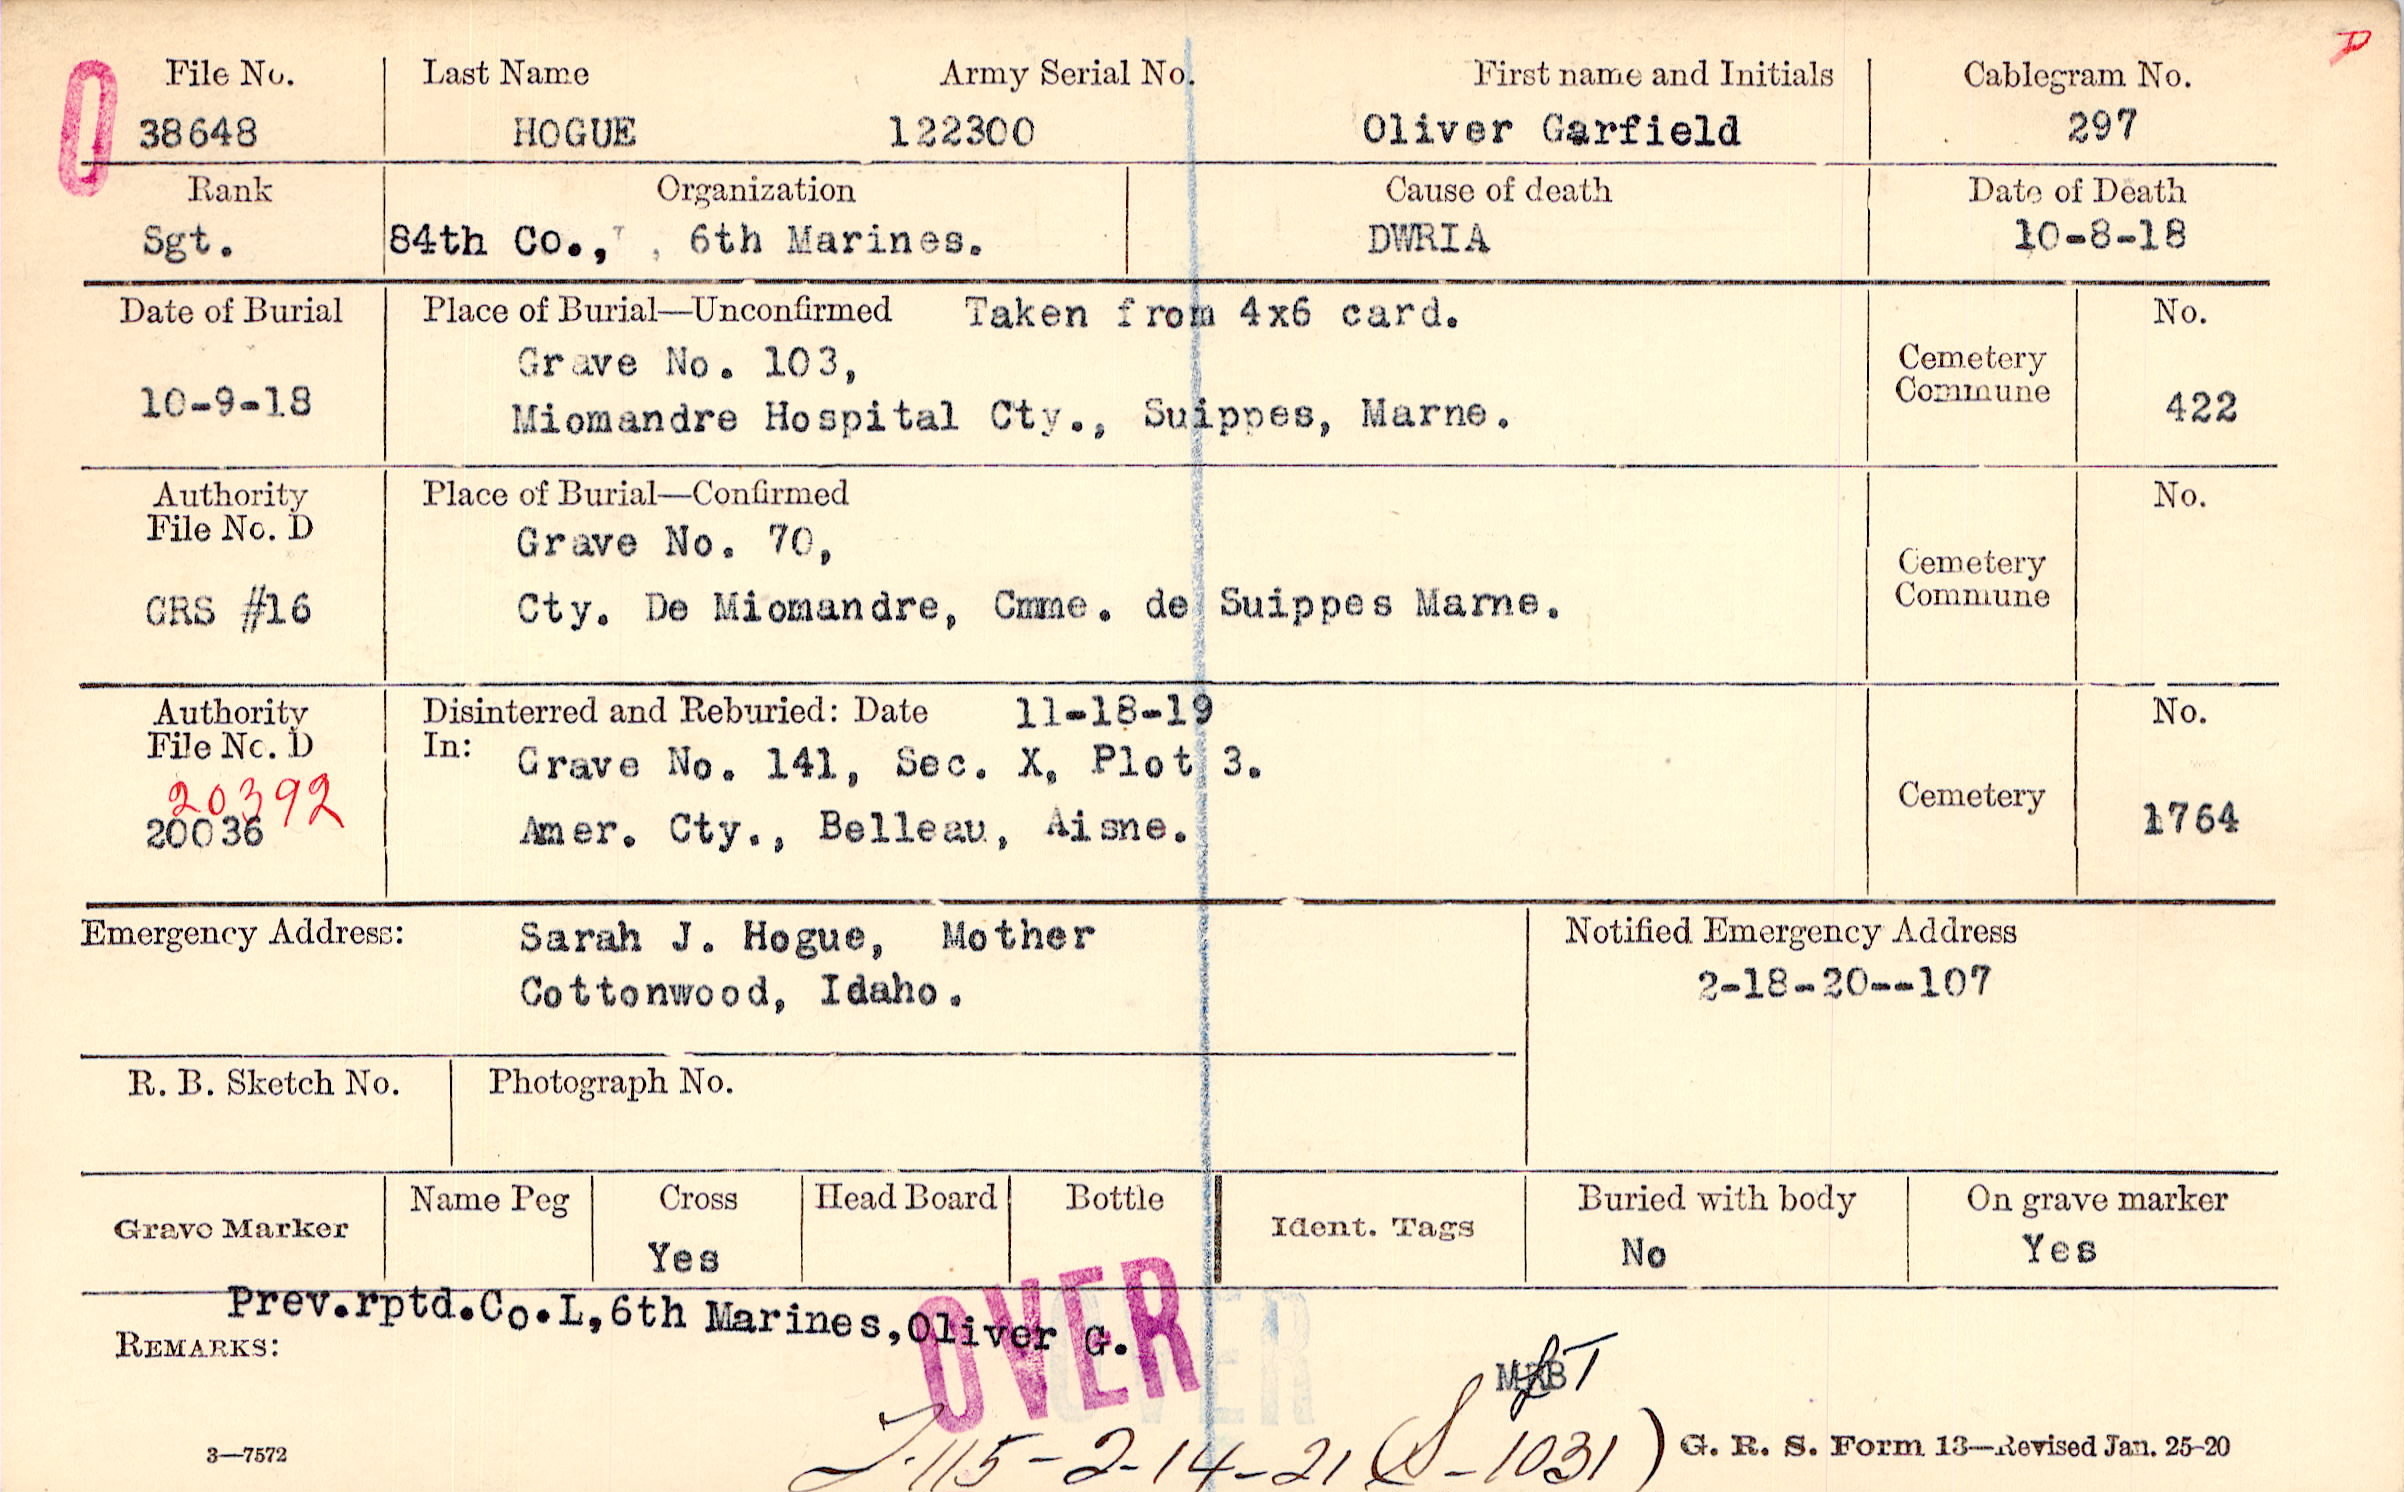 D
File No. Last Name Army Serial No. First name and Initials Cablegram No.
0 38648 HOGUE 122300 Oliver Garfield 297
Rank Organization Cause of death Date of Death
Sgt. 84th Co., , 6th Marines. DWRIA 10-8-18
Date of Burial Place of Burial—Unconfirmed Taken from 4x6 card. No.
Grave No. 103, Cemetery
10-9-18 Miomandre Hospital Cty., Suippes, Marne. Commune 422
Authority Place of Burial—Confirmed No.
File No. D Grave No. 70, Cemetery
GRS #16 Cty. De Miomandre, Cmme. de Suippes Marne. Commune
Authority Disinterred and Reburied: Date 11-18-19 No.
File No. D In: Grave No. 141, Sec. X, Plot 3.
20392 Cemetery
20036 Amer. Cty., Belleau, Aisne. 1764
Emergency Address: Sarah J. Hogue, Mother Notified Emergency Address
Cottonwood, Idaho. 2-18-20--107
R. B. Sketch No. Photograph No.
Grave Marker Name Peg Cross Head Board Bottle Ident. Tags Buried with body On grave marker
Yes No Yes
Prev.rptd.Co.L,6th Marines,Oliver G.
REMARKS: OVER
3—7572 115-2-14-21 (S-1031) G. R. S. Form 13—Revised Jan. 25-20